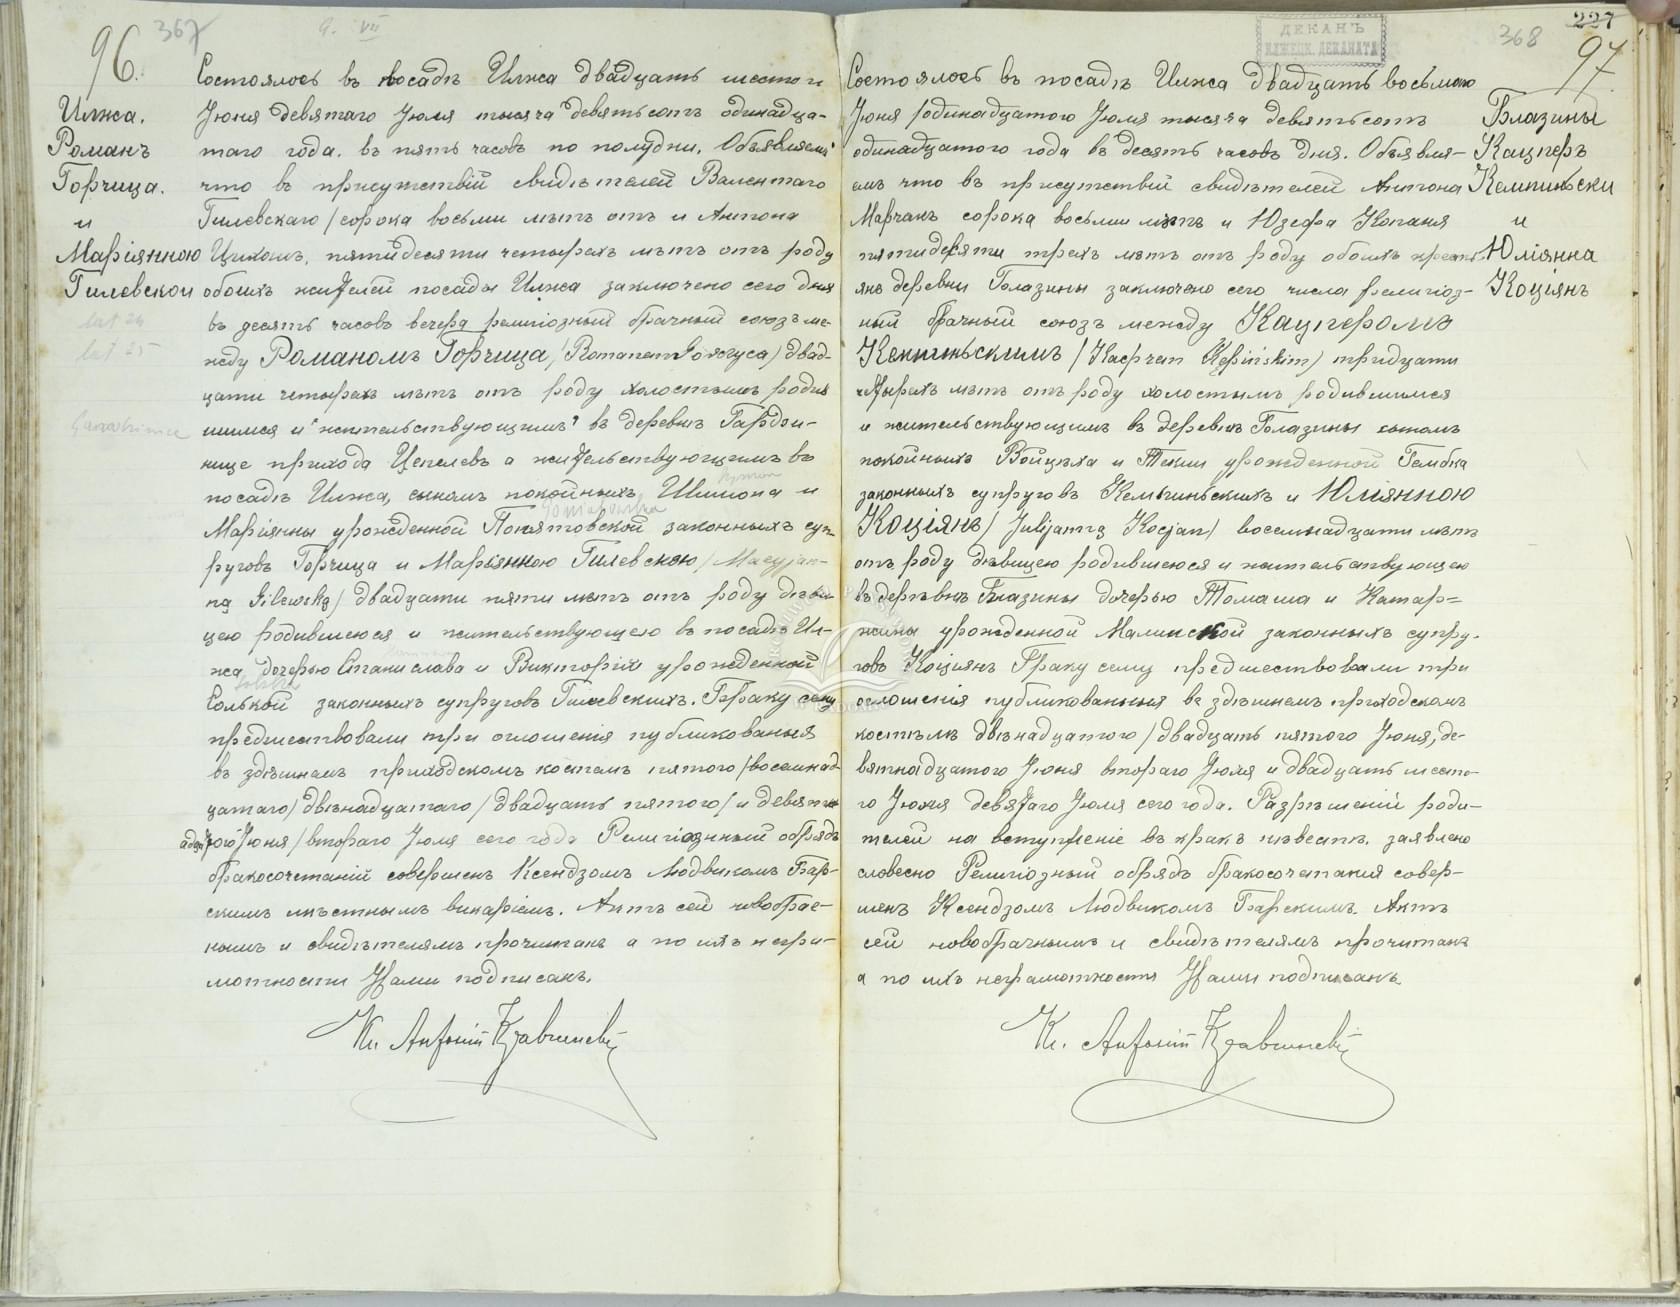 96.
367
9. VII
Илжа.
Романъ
Горчица.
и
Маріянною
Гилевской
lat 24
lat 25
Состоялось въ посадѣ Илжа двадцать шестого
Іюня девятаго Іюля тысяча девятьсотъ одинадца-
таго года. въ пять часовъ по полудни. Объявляемъ
что въ присутствіи свидѣтелей Валентаго
Гилевскаго /сорока восьми лѣтъ отъ и Антона
Цихонь, пятидесяти четырехъ лѣтъ отъ роду
обоихъ жителей посады Илжа заключено сего дня
въ десять часовъ вечера религіозный брачный союзъ ме-
жду Романомъ Горчица, /Romanem Gorczyca/ двад-
цати четырехъ лѣтъ отъ роду холостымъ родив
шимся и жительствующимъ въ деревнѣ Гардзи-
нице прихода Цепелевъ а жительствующимъ въ
посадѣ Илжа, сыномъ покойныхъ Шимона и
Маріянны урожденной Понятовской законныхъ суп-
руговъ Горчица и Маріянною Гилевскою /Maryjan-
ną Gilewską/ двадцати пяти лѣтъ отъ роду дѣви
цею родившеюся и жительствующею въ посадѣ Ил-
жа дочерью Станислава и Викторіи урожденной
законныхъ супруговъ Гилевскихъ. Браку сему
предшествовали три оглошенія публикованыя
въ здѣшнемъ приходскомъ костелѣ пятого /восемнад-
цатаго/ двѣнадцатаго /двадцать пятого/ и девятн
адцатого Іюня /втораго Іюля сего года Религіозный обрядъ
бракосочетаній совершенъ Ксендзомъ Людвикомъ Бар-
скимъ мѣстнымъ викаріемъ. Актъ сей новобрач-
нымъ и свидѣтелямъ прочитанъ а по ихъ негра-
мотности Нами подписанъ.
Кс. Антоній
ДЕКАНЪ
ИЛЖЕЦК. ДЕКАНАТА
368
227
97.
Блазины
Кацперъ
Кемпиньски
и
Юліянна
Коціянъ
Состоялось въ посадѣ Илжа двадцать восьмого
Іюня /одинадцатого Іюля тысяча девятьсотъ
одинадцатого года въ десять часовъ дня. Объявля-
емъ что въ присутствіи свидѣтелей Антона
Марчакъ сорока восьми лѣтъ и Юзефа Копаня
пятидесяти трехъ лѣтъ отъ роду обоихъ крестъ-
янъ деревни Блазины заключено сего числа религіоз-
ный брачный союзъ между Кацперомъ
Кемпиньскимъ /Kacprem Kępińskim/ тридцати
четырехъ лѣтъ отъ роду холостымъ родившимся
и жительствующимъ въ деревнѣ Блазины сыномъ
покойныхъ Войцѣха и Текли урожденной Гембка
законныхъ супруговъ Кемпиньскихъ и Юліянною
Коціянъ /Juljanną Kocjan/ восемнадцати лѣтъ
отъ роду дѣвицею родившеюся и жительствующею
въ деревнѣ Блазины дочерью Томаша и Катар-
жины урожденной Малинской законныхъ супру-
говъ Коціянъ Браку сему предшествовали три
оглошенія публикованыя въ здѣшнемъ приходскомъ
костелѣ двѣнадцатого /двадцать пятого Іюня, де-
вятнадцатого Іюня второго Іюля и двадцать шесто-
го Іюня девятаго Іюля сего года. Разрѣшеній роди-
телей на вступленіе въ бракъ невѣстѣ заявлено
словесно Религіозный обрядъ бракосочетания совер-
шенъ Ксендзомъ Людвикомъ Барскимъ. Актъ
сей новобрачнымъ и свидѣтелямъ прочитанъ
а по ихъ неграмотности Нами подписанъ.
Кс. Антоній